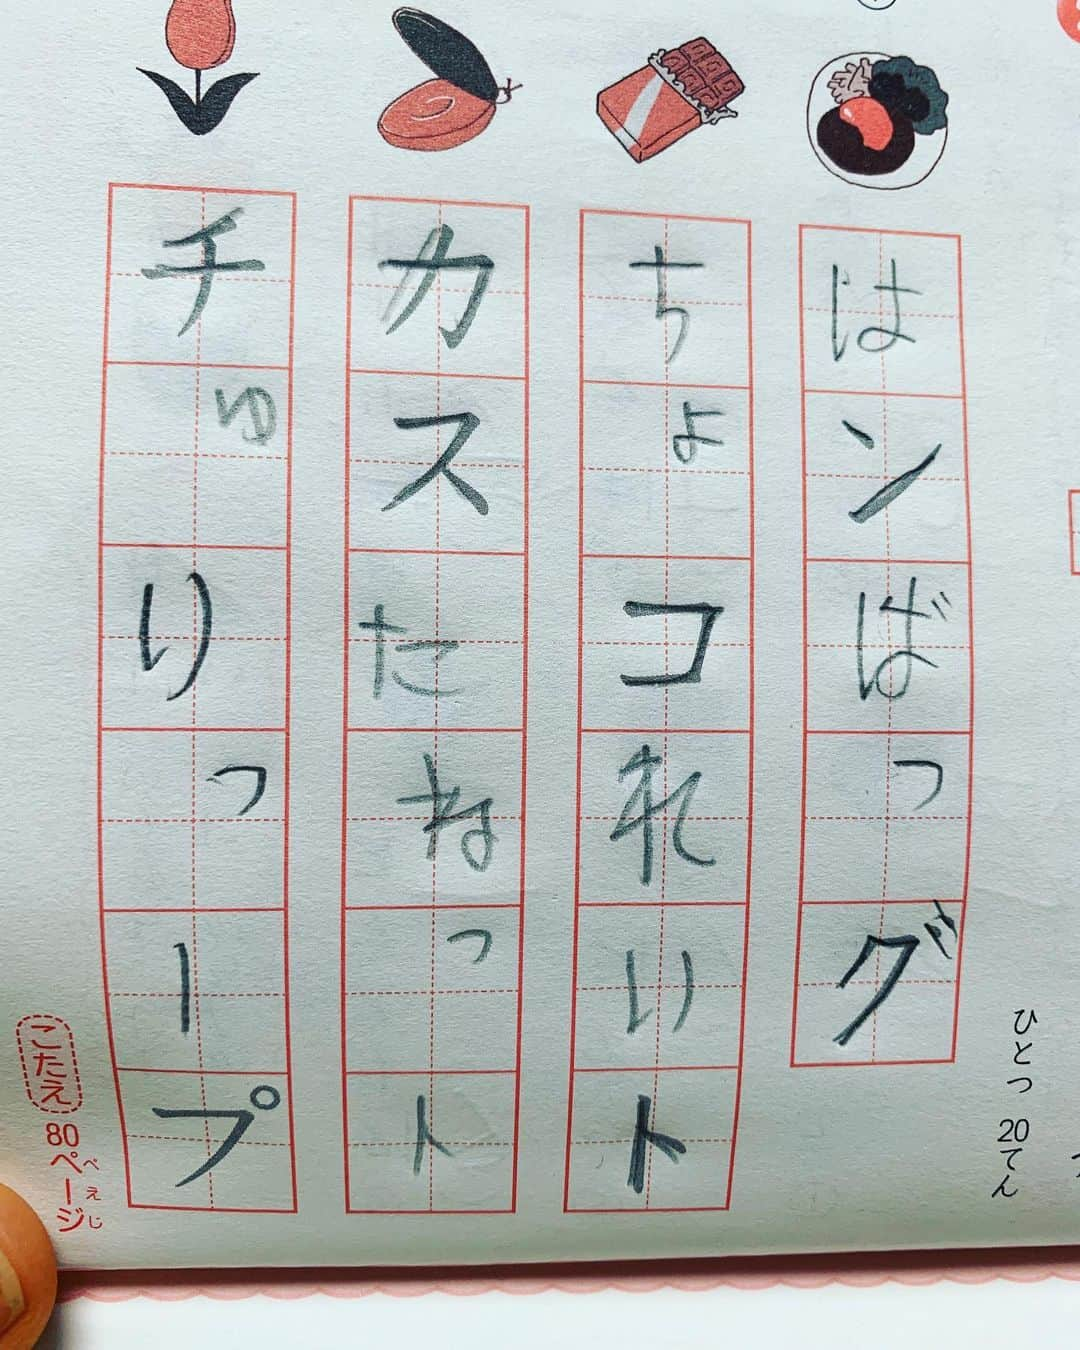 はンばっグ
ちょコれいト
カスたねっト
チゅりっープ
ひとつ 20てん
こたえ
80ページ
ぺえじ